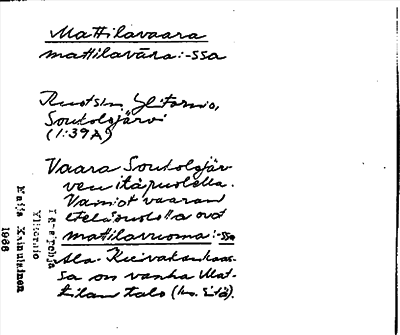 Mattilavaara
mattilavāra: -ssa
Ruotsin Ylitornio,
Soukolojärvi
(1:39A)
Vaara Soukolojär-
ven itäpuolella.
Vaaran
eteläpuolella ovat
mattilavuoma: -ssa
Ala Kuivakankaas-
sa on vanha Mat-
tilan talo (ks. sitä).
Ylitornio
Maija Kainulainen
1966